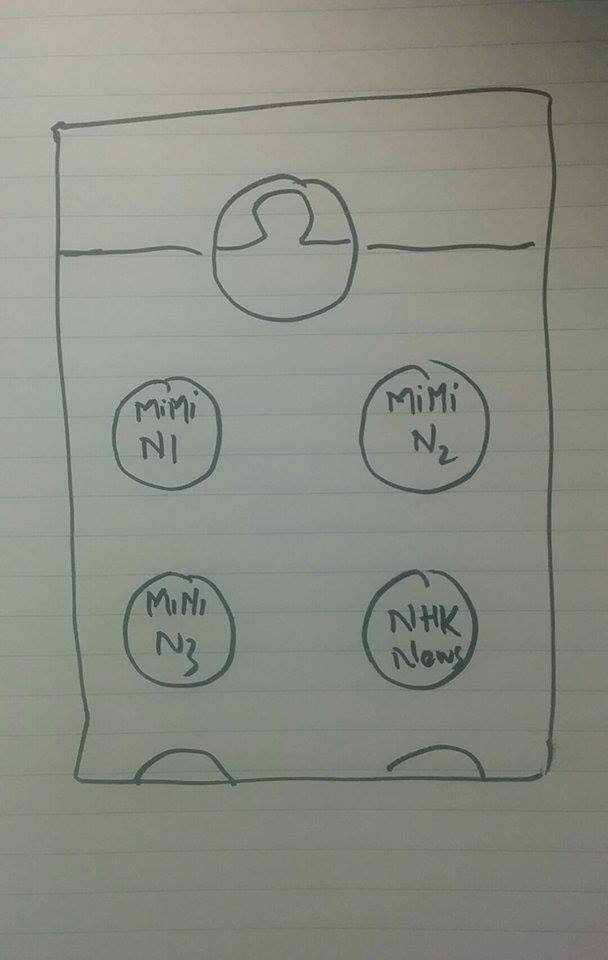 MiMi
N1
MiMi
N2
MiMi
N3
NHK
News